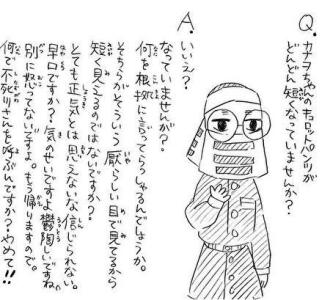 Q.カナヲちゃんのキュロットパンツが
どんどん短くなっていませんか?
A.いいえ?
なっていませんが?
何を根拠に言ってらっしゃるんでしょうか。
そちらがそういう厭らしい目で見てるから
短く見えるのではないですか?
とても正気とは思えないな信じられない。
早口ですか?気のせいですよ鬱陶しいですね
別に怒ってないですよ。もう帰りますので。
何で不死川さんを呼ぶんですか?やめて!!